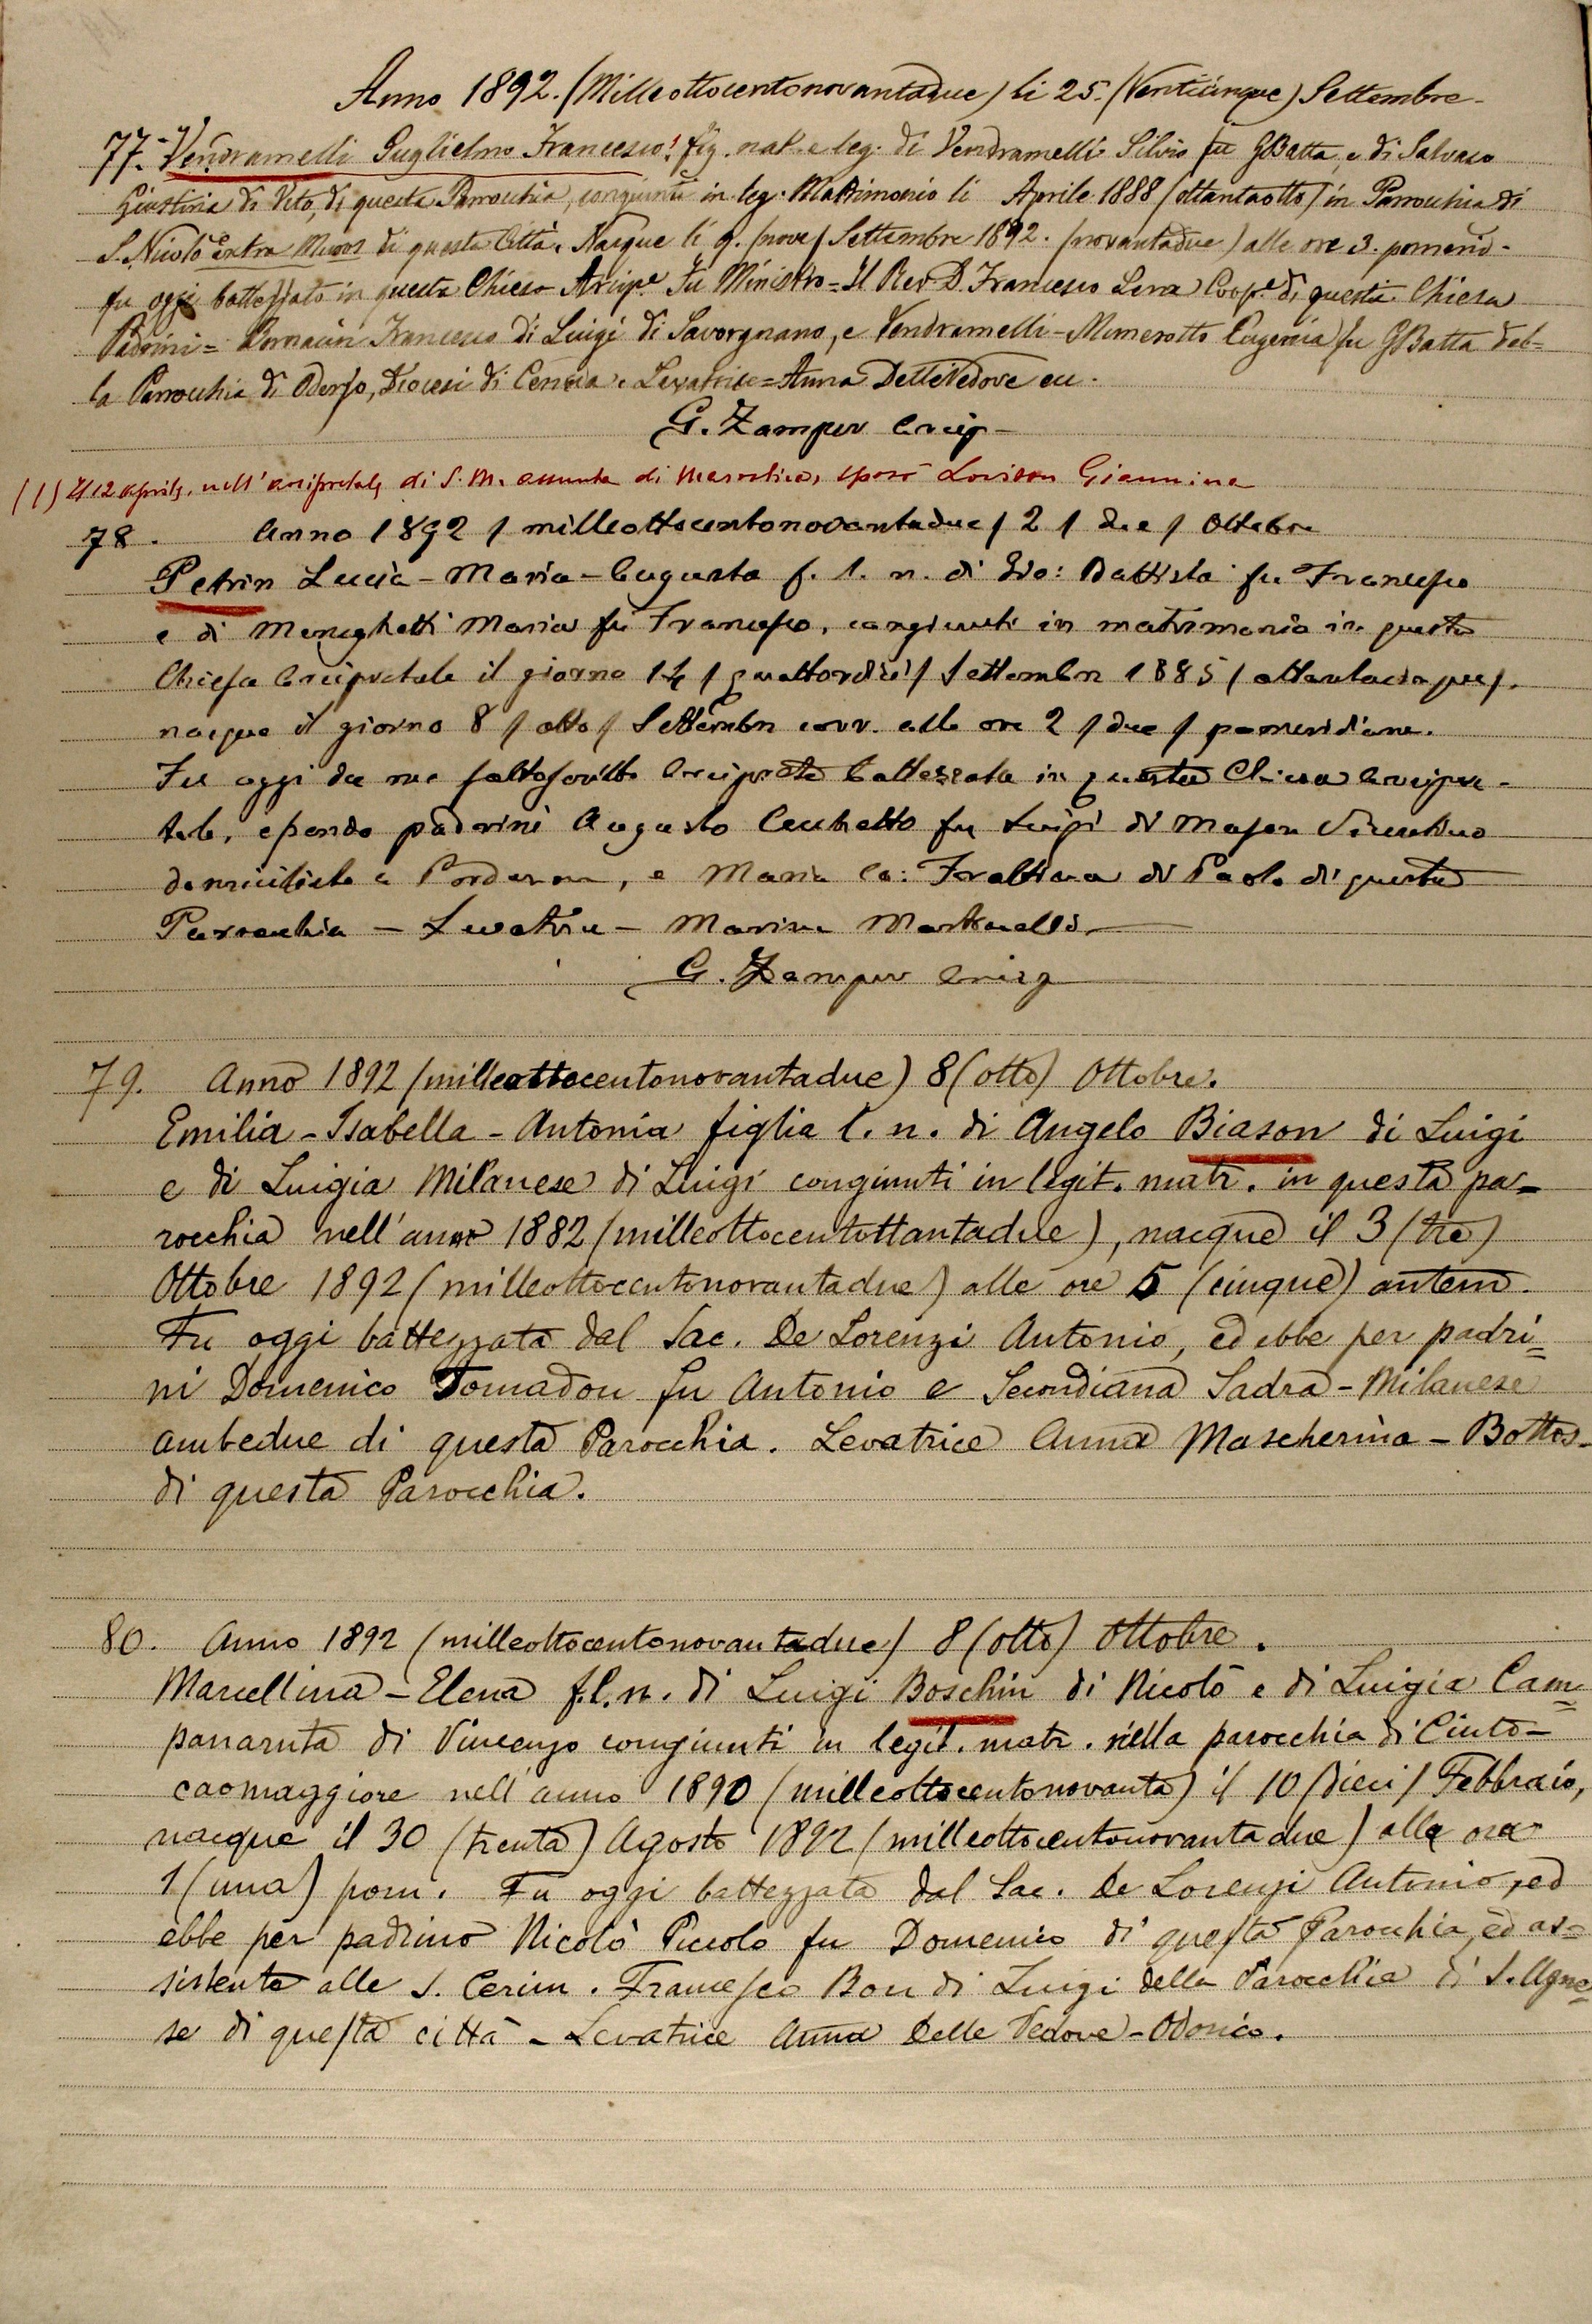 Anno 1892. (Milleottocentonovantadue) li 25. (Venticinque) Settembre -
77. - Vendramelli Guglielmo Francesco! fig. nat. e leg. di Vendramelli Silvio fu GBatta, e di Salvaco
Giustina di Vito, di questa Parrocchia, congiunti in leg. Matrimonio li Aprile 1888 (ottantaotto) in Parrochia di
S. Nicolò Extra Muros di questa Città. Nacque li 9. (nove) Settembre 1892. (novantadue) alle ore 3. pomerid -
fu oggi battezzato in questa Chiesa Arcip.e Fu Ministro = Il Rev. D. Francesco Lena Coop.e di questa Chiesa
Padrini = Francesco di Luigi di Savorgnano, e Vendramelli - Eugenia fu GBatta del=
la Parrochia di Oderzo, Diocesi di Ceneda. Levatrice = Anna DelleVedove
G. Zamper Arcip -
(1) Il 12 aprile, nell'arcipretale di S. M. assunta di Marostica, sposò Lovison Giannina
78. Anno 1892 / milleottocentonovantadue / 2 / due / Ottobre
Petrin Lucia - Maria - Augusta f. l. n. di Gio: Battista fu Francesco
e di Meneghetti Maria fu Francesco, congiunti in matrimonio in questa
Chiesa Arcipretale il giorno 14 / quattordici / Settembre 1885 / ottantacinque /.
nacque il giorno 8 / otto / Settembre corr. alle ore 2 / due / pomeridiane.
Fu oggi da me sottoscritto Arciprete battezzata in questa Chiesa Arcipre -
tale, essendo padrini Augusto Cecchetto fu Luigi di Mason Vicentino
domiciliato a , e Maria Co: Frattina di Paolo di questa
Parrocchia - Levatrice - Marina Martinelli.
G. Zamper Arcip
79. Anno 1892 (milleottocentonovantadue) 8 (otto) Ottobre.
Emilia - Isabella - Antonia figlia l. n. di Angelo Biason di Luigi
e di Luigia Milanese di Luigi congiunti in legit. matr. in questa pa=
rocchia nell'anno 1882 (milleottocentottantadue), nacque il 3 (tre)
Ottobre 1892 (milleottocentonovantadue) alle ore 5 (cinque) antem.
Fu oggi battezzata dal Sac. De Lorenzi Antonio, ed ebbe per padri=
ni Domenico Tomadon fu Antonio e Secondiana Sadra - Milanese
ambedue di questa Parocchia. Levatrice Anna Mascherina - Bottos -
di questa Parocchia.
80. Anno 1892 (milleottocentonovantadue) 8 (otto) Ottobre.
Marcellina - Elena f. l. n. di Luigi Boschin di Nicolò e di Luigia Cam=
panaruta di Vincenzo congiunti in legit. matr. nella parocchia di Cinto -
caomaggiore nell'anno 1890 (milleottocentonovanta) il 10 (dieci) Febbraio,
nacque il 30 (trenta) Agosto 1892 (milleottocentonovantadue) alla ora
1 (una) pom. Fu oggi battezzata dal Sac. De Lorenzi Antonio, ed
ebbe per padrino Nicolò Piccolo fu Domenico di questa Parochia, ed as=
sistente alle S. Cerim. Francesco Bon di Luigi della Parocchia di S. Agne=
se di questa città - Levatrice Anna Delle Vedove - Odorico.